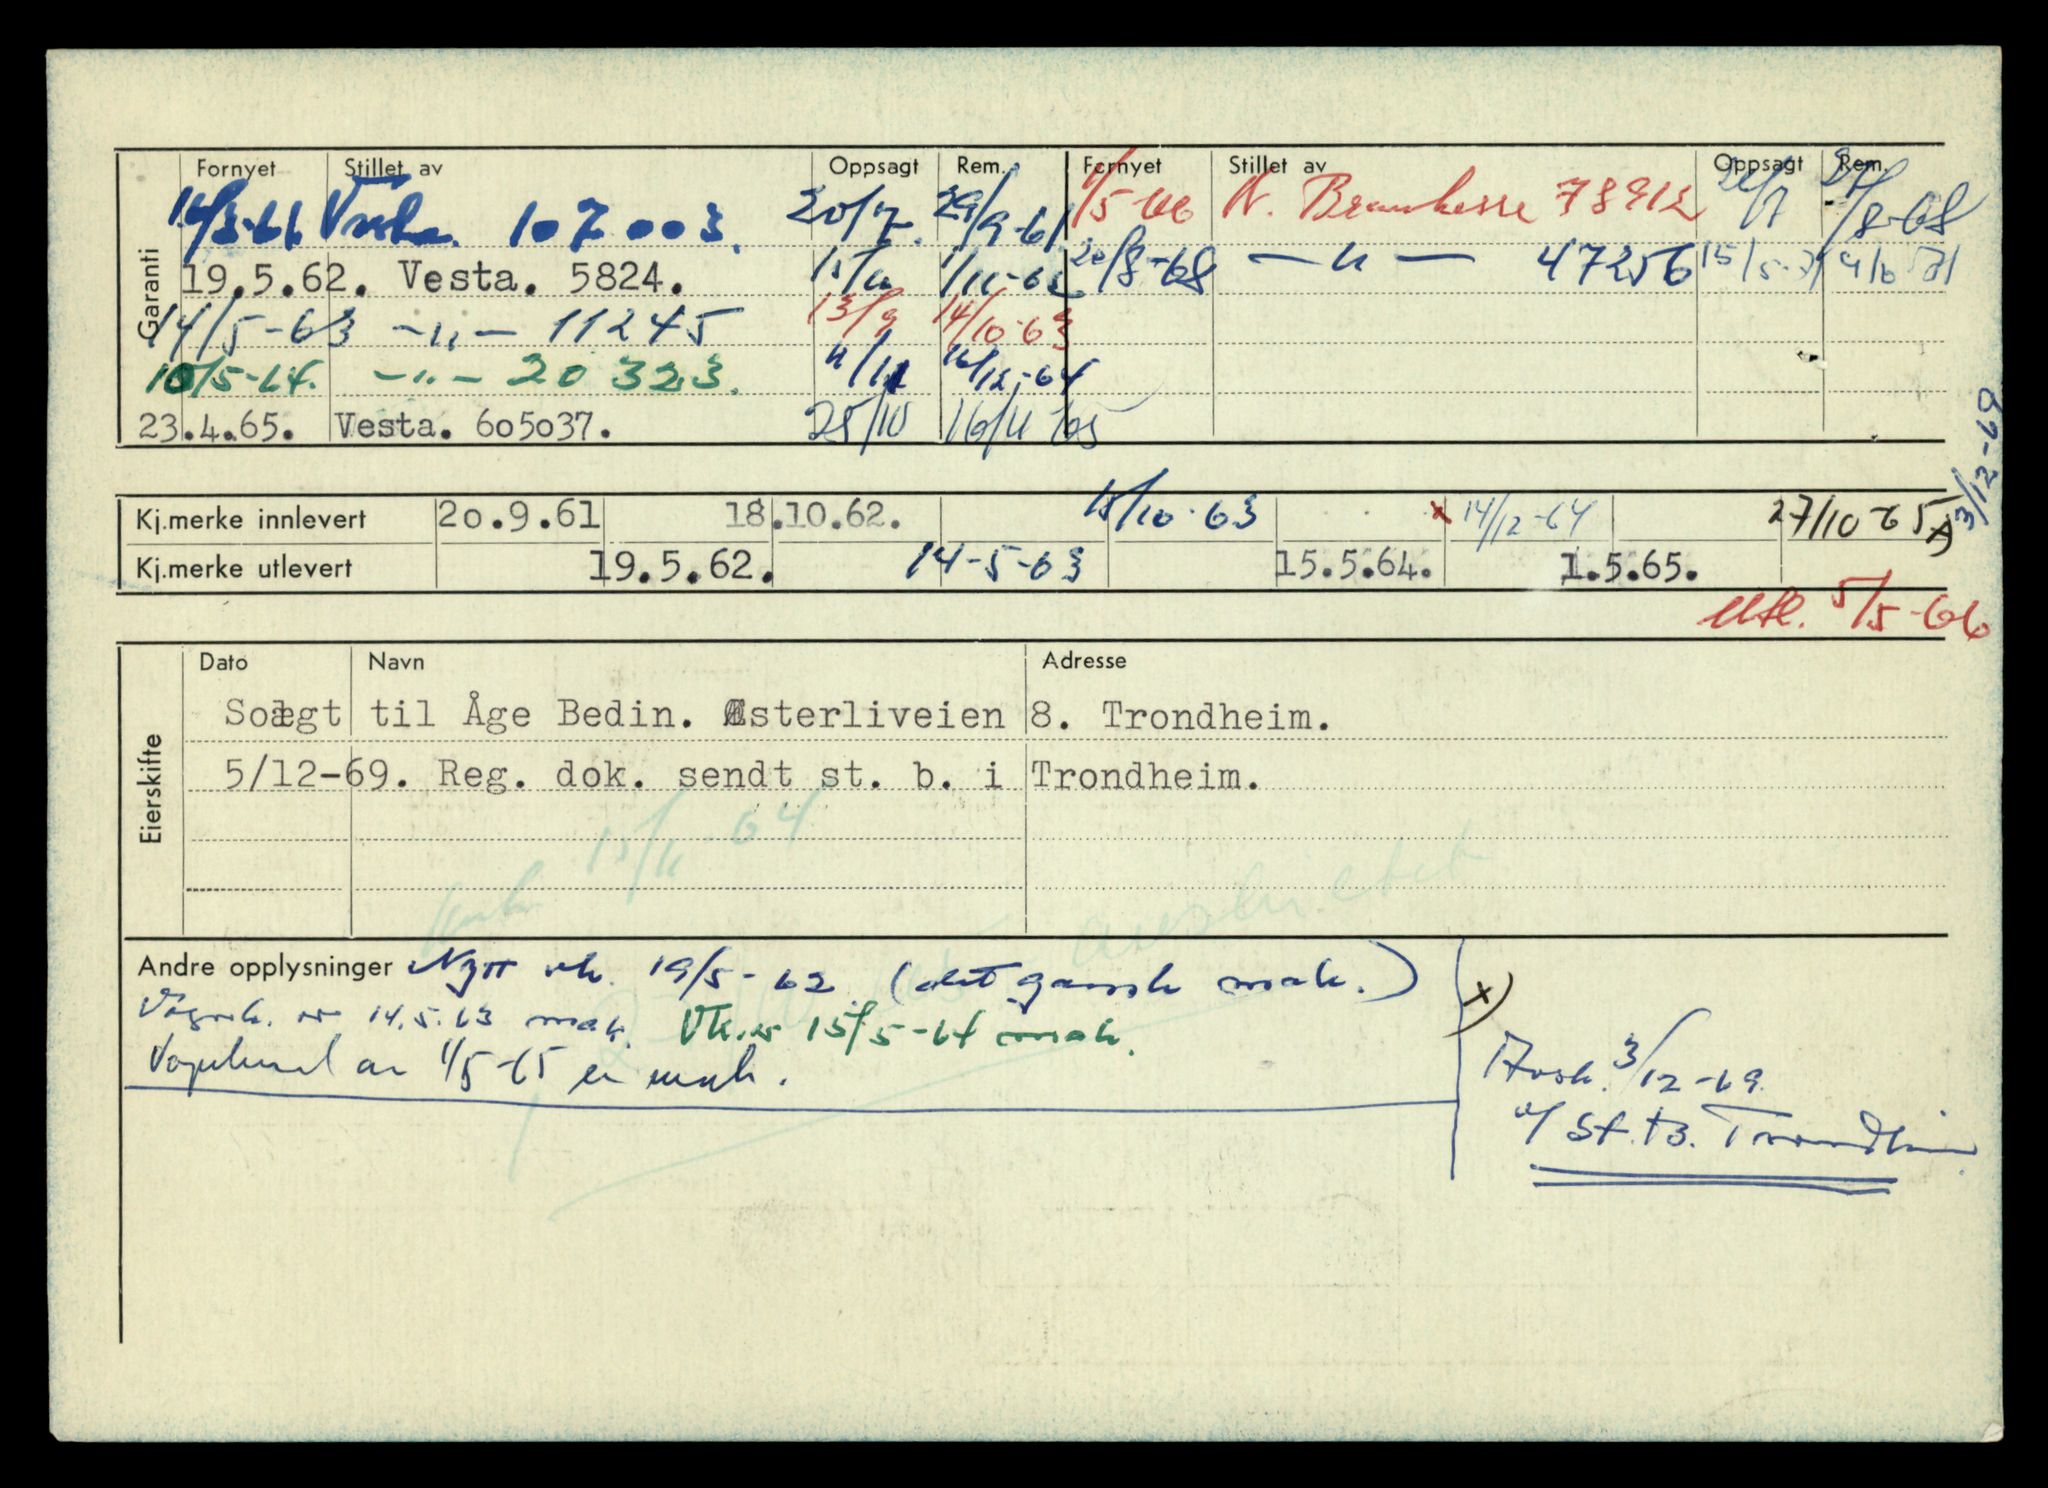 Garanti
Fornyet Stillet av Oppsagt Rem. Fornyet Stillet av Oppsagt Rem.
16/3-61 Vesta. 107003. 20/9. 29/9-61 4/5-66 N. Brankasse 78912 22/7 /8-68
19.5.62. Vesta. 5824. 15/10 1/11-62 20/8-68 —"— 47256 15/5-71 4/6 71
14/5-63 —"— 11245 13/9 14/10-63
15/5-64. —"— 20323. 11/12 16/12-64
23.4.65. Vesta. 605037. 25/10 16/11 65
3/12-69
Kj.merke innlevert 20.9.61 18.10.62. 15/10-63 x 14/12-64 27/10-65
Kj.merke utlevert 19.5.62. 14-5-63 15.5.64. 1.5.65.
Utl. 5/5-66
Eierskifte
Dato Navn Adresse
Solgt til Åge Bedin. Østerliveien 8. Trondheim.
5/12-69. Reg. dok. sendt st. b. i Trondheim.
15/11-64
avskiltet
Andre opplysninger Nytt vk. 19/5-62 (det gamle mak.)
Vognk. av 14.5.63 mak. Vk. av 15/5-64 mak.
Vognkort av 1/5-65 er mak.
x)
Avsk. 3/12-69
v/ St.b. Trondheim